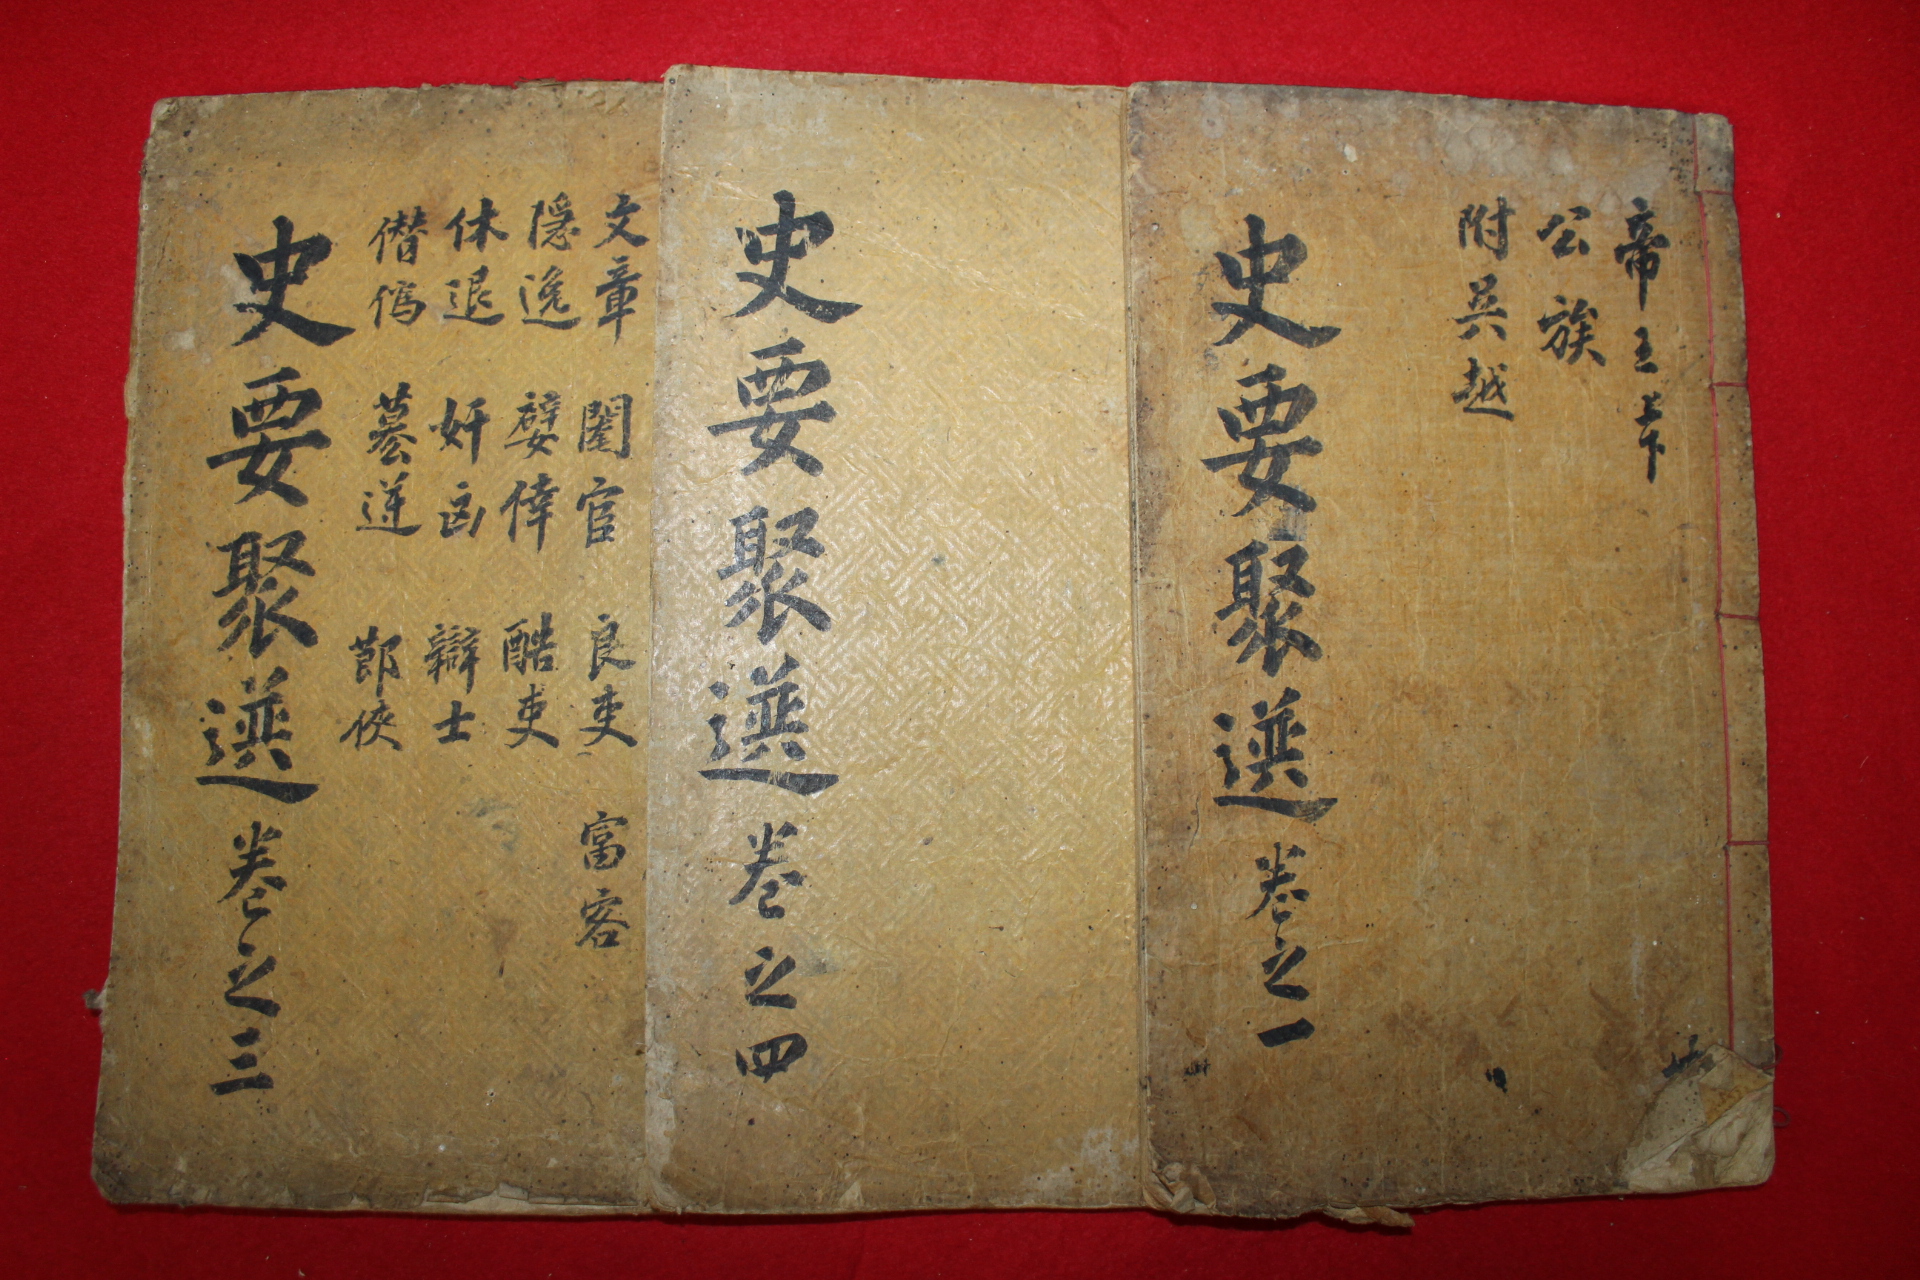 帝王上下
公族
附吳越
史要聚選卷之一
史要聚選卷之四
文章 閹官 良吏 富客
隱逸 嬖倖 酷吏
休退 奸凶 辯士
僭偽 簒逆 節俠
史要聚選卷之三